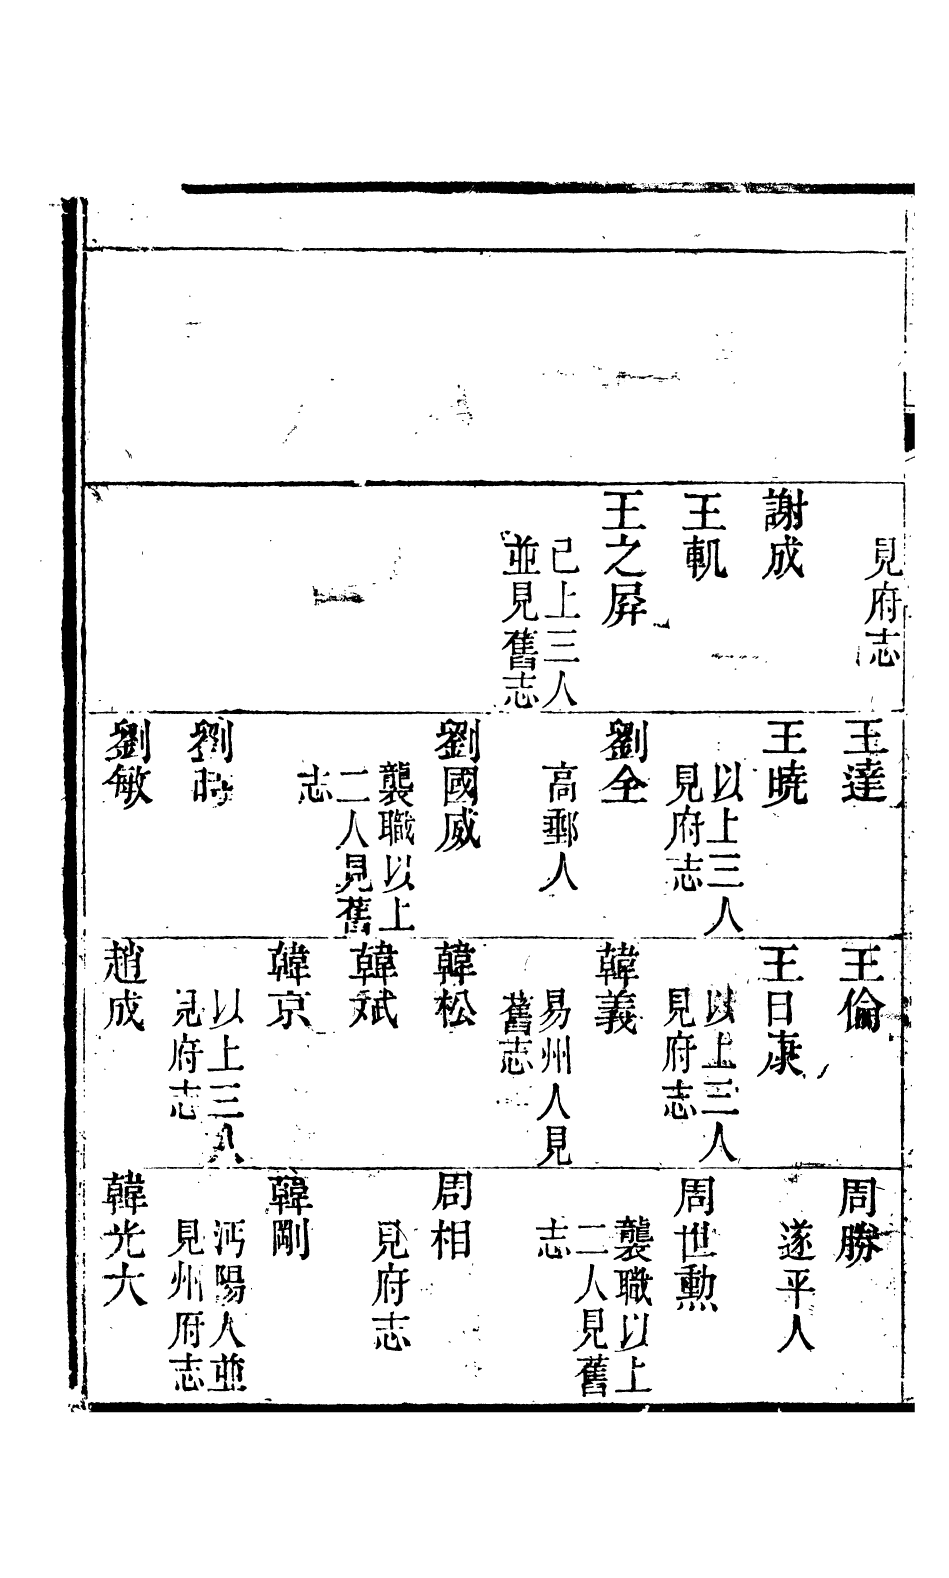 見府志
謝成
王軏
王之屛
已上三人
並見舊志
王達
王曉
以上三人
見府志
劉全
高郵人
劉國威
襲職以上
二人見舊
志
劉時
劉敏
王倫
王日康
以上三人
見府志
韓義
易州人見
舊志
韓松
韓斌
韓京
以上三人
見府志
趙成
周勝
遂平人
周世勲
襲職以上
二人見舊
志
周相
見府志
韓剛
沔陽人並
見州府志
韓光大